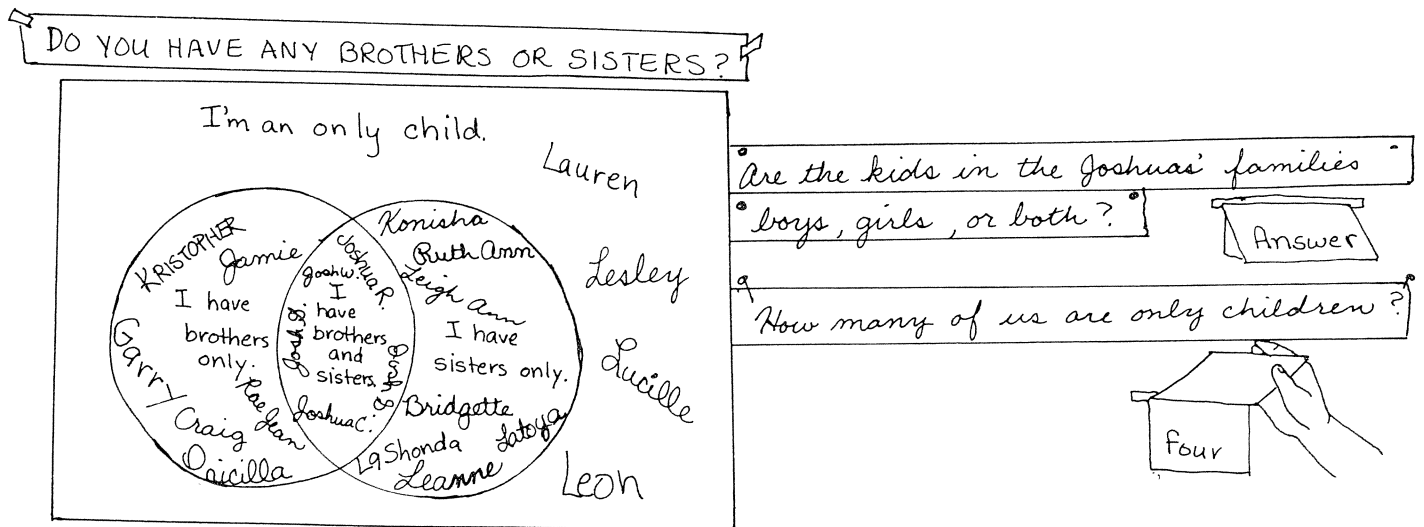 DO YOU HAVE ANY BROTHERS OR SISTERS?
I'm an only child.
Lauren
Lesley
Lucille
Leon
KRISTOPHER
Jamie
I have
brothers
only.
Garry
Rae Jean
Craig
Joshua R.
Josh W.
I
have
brothers
and
sisters.
Joshua C.
Konisha
Ruth Ann
Leigh Ann
I have
sisters only.
Bridgette
Latoya
LaShonda
Leanne
Are the kids in the Joshuas' families
boys, girls, or both?
Answer
How many of us are only children?
Four